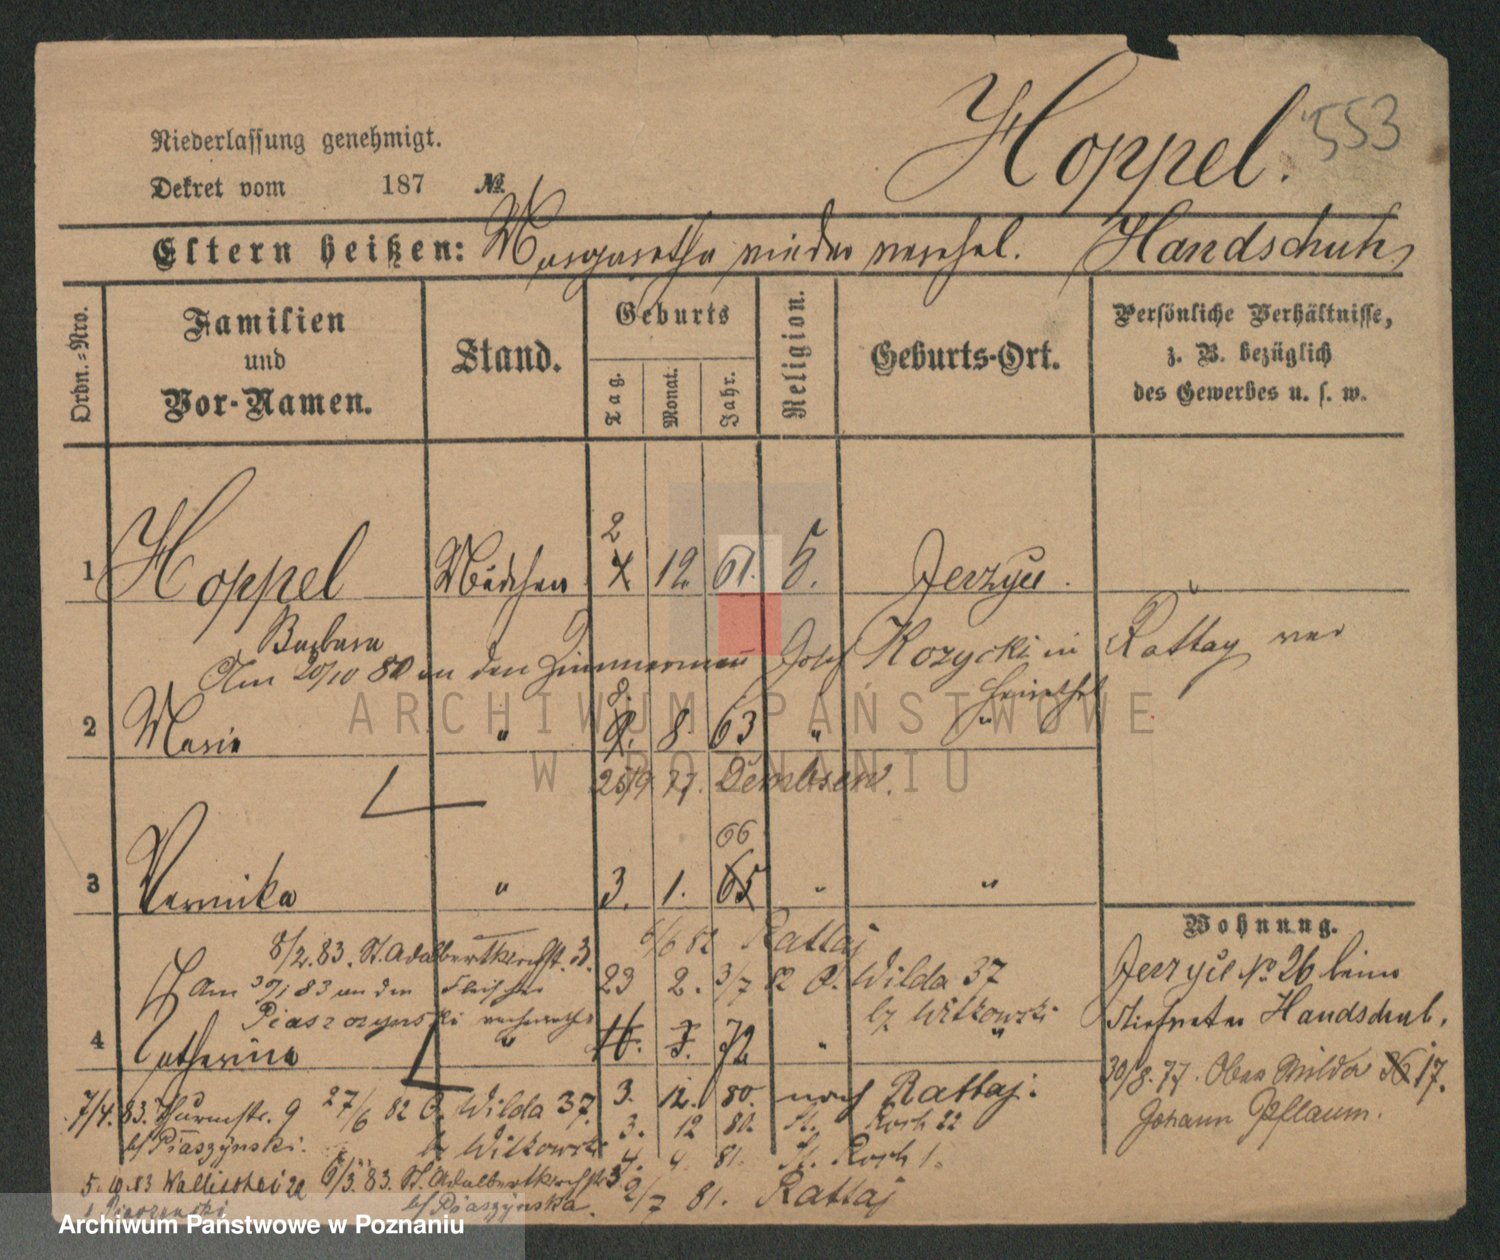 Hoppel. 553
Niederlassung genehmigt.
Dekret vom 187 №
Eltern heißen: Margaretha wieder verehel. Handschuh
Ordn.=Nro.
Familien
und
Vor-Namen.
Stand.
Geburts
Tag.
Monat.
Jahr.
Religion.
Geburts-Ort.
Persönliche Verhältnisse,
z. B. bezüglich
des Gewerbes u. s. w.
2
1 Hoppel Mädchen 12 61.
Jerzyce.
Barbara
Am 20/10 80 an den Zimmermann Josef Kozycki in Rattay ver
heirathet
8.
2 Marie " 8 63 " "
25/9 77. Dembsen.
66
3 " 3. 1. 65 " "
Wohnung.
6/6 82 Rattaj
8/2. 83. St. Adalbertkirchstr. 3.
23 2. 3/7 82 O. Wilda 37
Jerzyce No 26 beim
Am 30/1 83 an den Fleischer
bz Witkowski
Stiefvater Handschuh.
Piaszczynski verheirathet
4 Catharina " 72 " "
30/8. 77. Ober Wilda 36 17.
Johann Pflaum.
7/4. 83. Thurmstr. 9 27/6 82 O. Wilda 37. 3. 12. 80. nach Rattaj.
bz Witkowski 3. 12 80. St. Roch 22
bf Piaszynski.
4. 9. 81. St. Roch 1.
5. 10. 83 Wallischei 6/3. 83. St. Adalbertkirchstr 3
2/7 81. Rattaj
bf Piaszynska.
ARCHIWUM PAŃSTWOWE
W POZNANIU
Archiwum Państwowe w Poznaniu